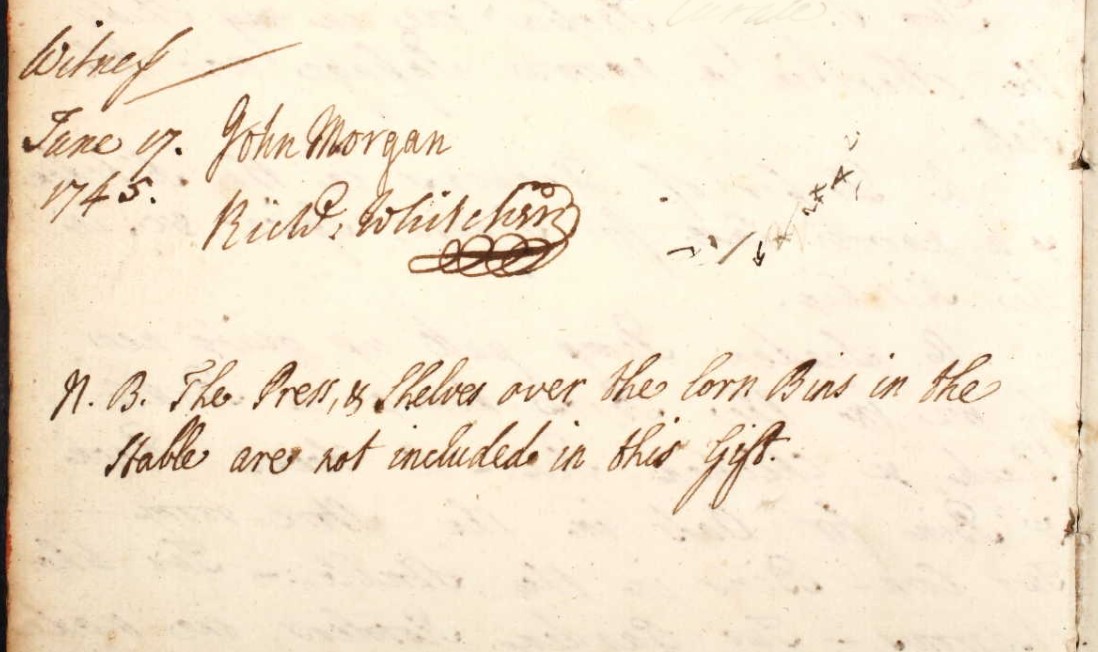 Witness
June 17. John Morgan
1745.
Richd: Whitchern
N. B. The Press, & Shelves over the Corn Bins in the
Stable are not included in this Gift.